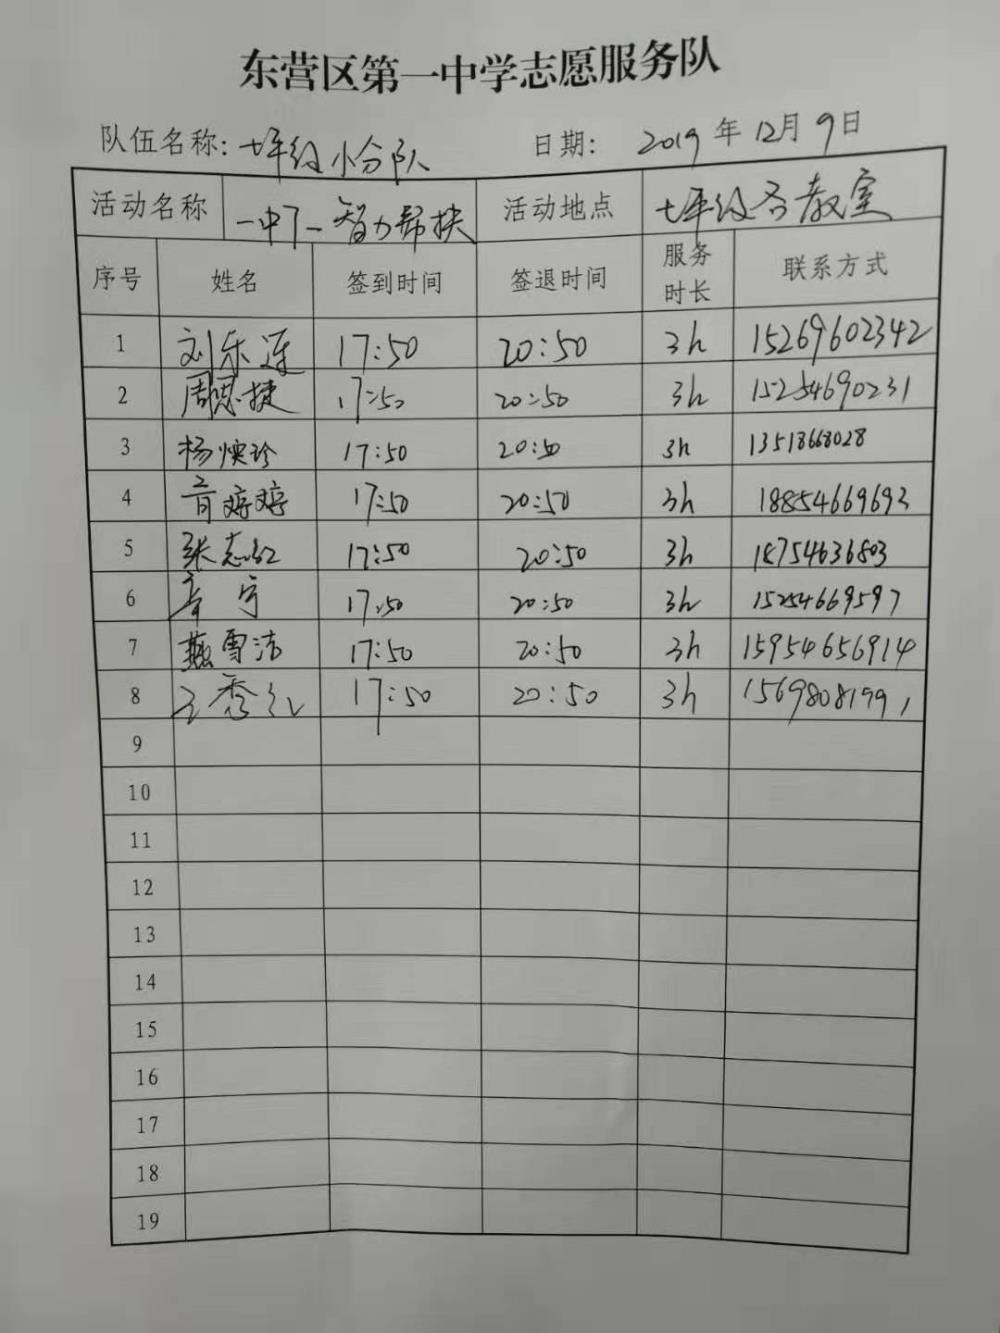 东营区第一中学志愿服务队
队伍名称: 七年级小分队 日期: 2019年12月9日
活动名称 智力帮扶 活动地点 七年级各教室
序号 姓名 签到时间 签退时间 服务时长 联系方式
1 刘乐莲 17:50 20:50 3h 15269602342
2 周思捷 17:50 20:50 3h 15254690231
3 杨焕珍 17:50 20:50 3h 13518668028
4 17:50 20:50 3h 18854669693
5 张志红 17:50 20:50 3h 18754636803
6 17:50 20:50 3h 15254669597
7 燕雪洁 17:50 20:50 3h 15954656914
8 王秀红 17:50 20:50 3h 15698081991
9
10
11
12
13
14
15
16
17
18
19